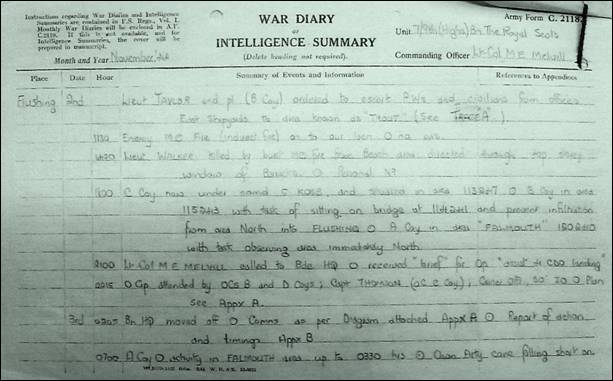 Instructions regarding War Diaries and Intelligence
Summaries are contained in F.S. Regs., Vol. I.
Monthly War Diaries will be enclosed in A.F.
C.2119. If this is not available, and for
Intelligence Summaries, the cover will be
prepared in manuscript.
Month and Year November '44
WAR DIARY
or
INTELLIGENCE SUMMARY
(Delete heading not required).
Army Form C. 2118.
Unit 7/9th (Highrs) Bn The Royal Scots
Commanding Officer Lt-Col M E Melvill
Place Date Hour Summary of Events and Information References to Appendices
Flushing 2nd Lieut TAYLOR and pl (B Coy) ordered to escort P.W's and civilians from offices
East Shipyards to area known as "TROUT" (See TRACE A).
1130 Enemy MG Fire (indirect fire) on to our own
Lieut WALKER killed by burst MG fire from Beach area directed through top storey
window of Barracks
C Coy now under comd 5 KOSB, and situated in area 113247 O B Coy in area
115243 with task of sitting on bridge at and prevent infiltration
from area North into FLUSHING O A Coy in area "FALMOUTH"
with task observing area immediately North.
2100 Lt-Col M E MELVILL called to Bde HQ O received "brief" for Op "assist 4 CDO landing"
0015 O Gp attended by OCs B and D Coys; Capt THOMSON (OC C Coy); Carrier offr, SO, IO O Plan
see Appx A.
3rd Bn HQ moved off O Comns as per Diagram attached Appx A O Report of action
and timings Appx B
0700 A Coy O activity in FALMOUTH area up to 0330 hrs O Own Arty came falling short on